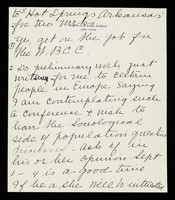 to Hot Springs Arkansas
for two weeks
1) go act on the job for
the N.B.C.C.
2 Do preliminary work, just
writing for me to certain
people in Europe saying
I am contemplating such
a conference & wish to
have the sociological
side of population question
discussed. Ask if in
his or her opinion Sept
1-4 is a good time
if he or she will be interested